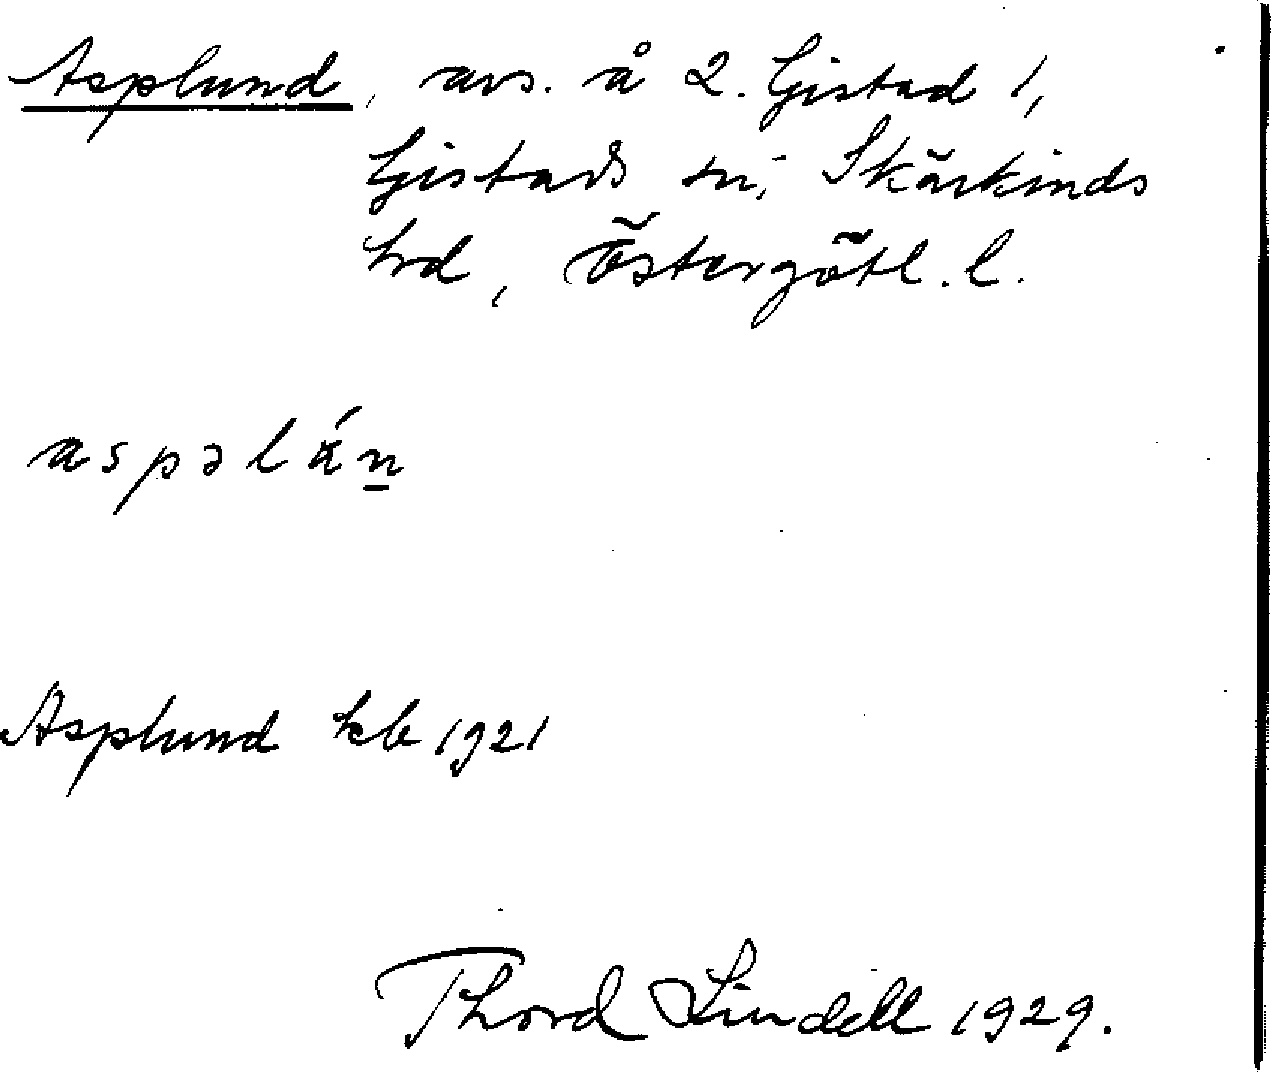 Asplund, avs. å 2. Gistad 1,
Gistads sn, Skärkinds
hrd, Östergötl. l.
aspəlán
Asplund kb 1921
Thord Lindell 1929.